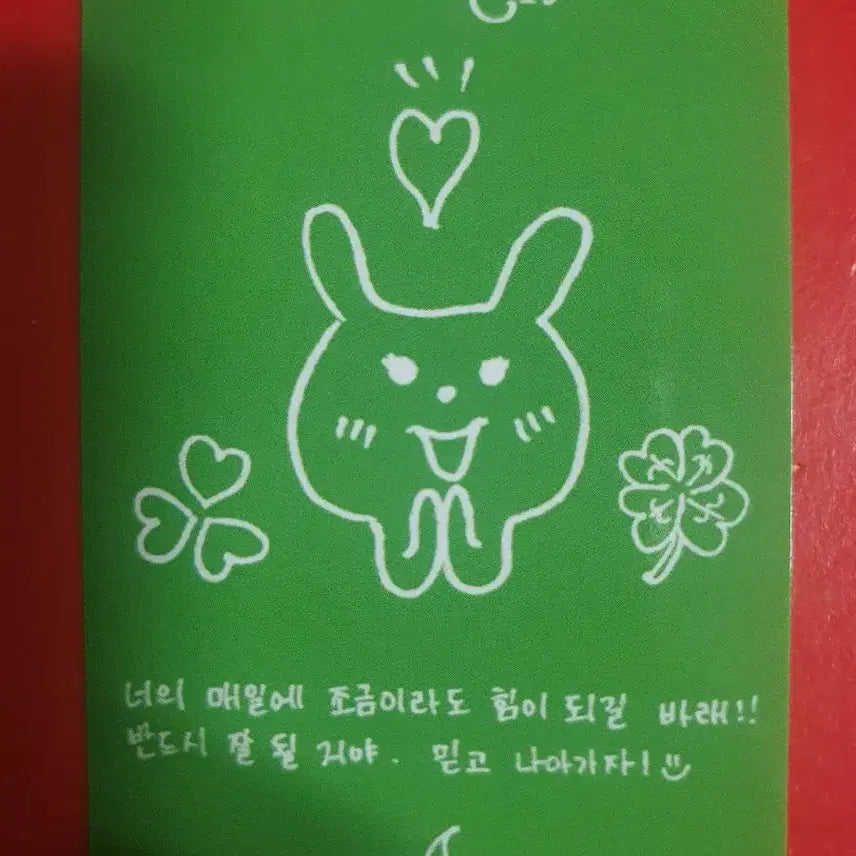 너의 매일에 조금이라도 힘이 되길 바래!!
반드시 잘 될 거야. 믿고 나아가자!